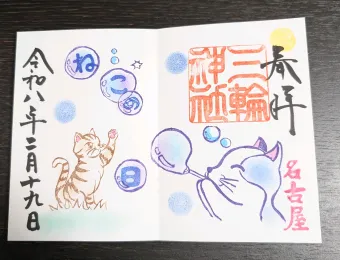 奉拝
三輪
神社
名古屋
ねこの日
令和八年二月十九日